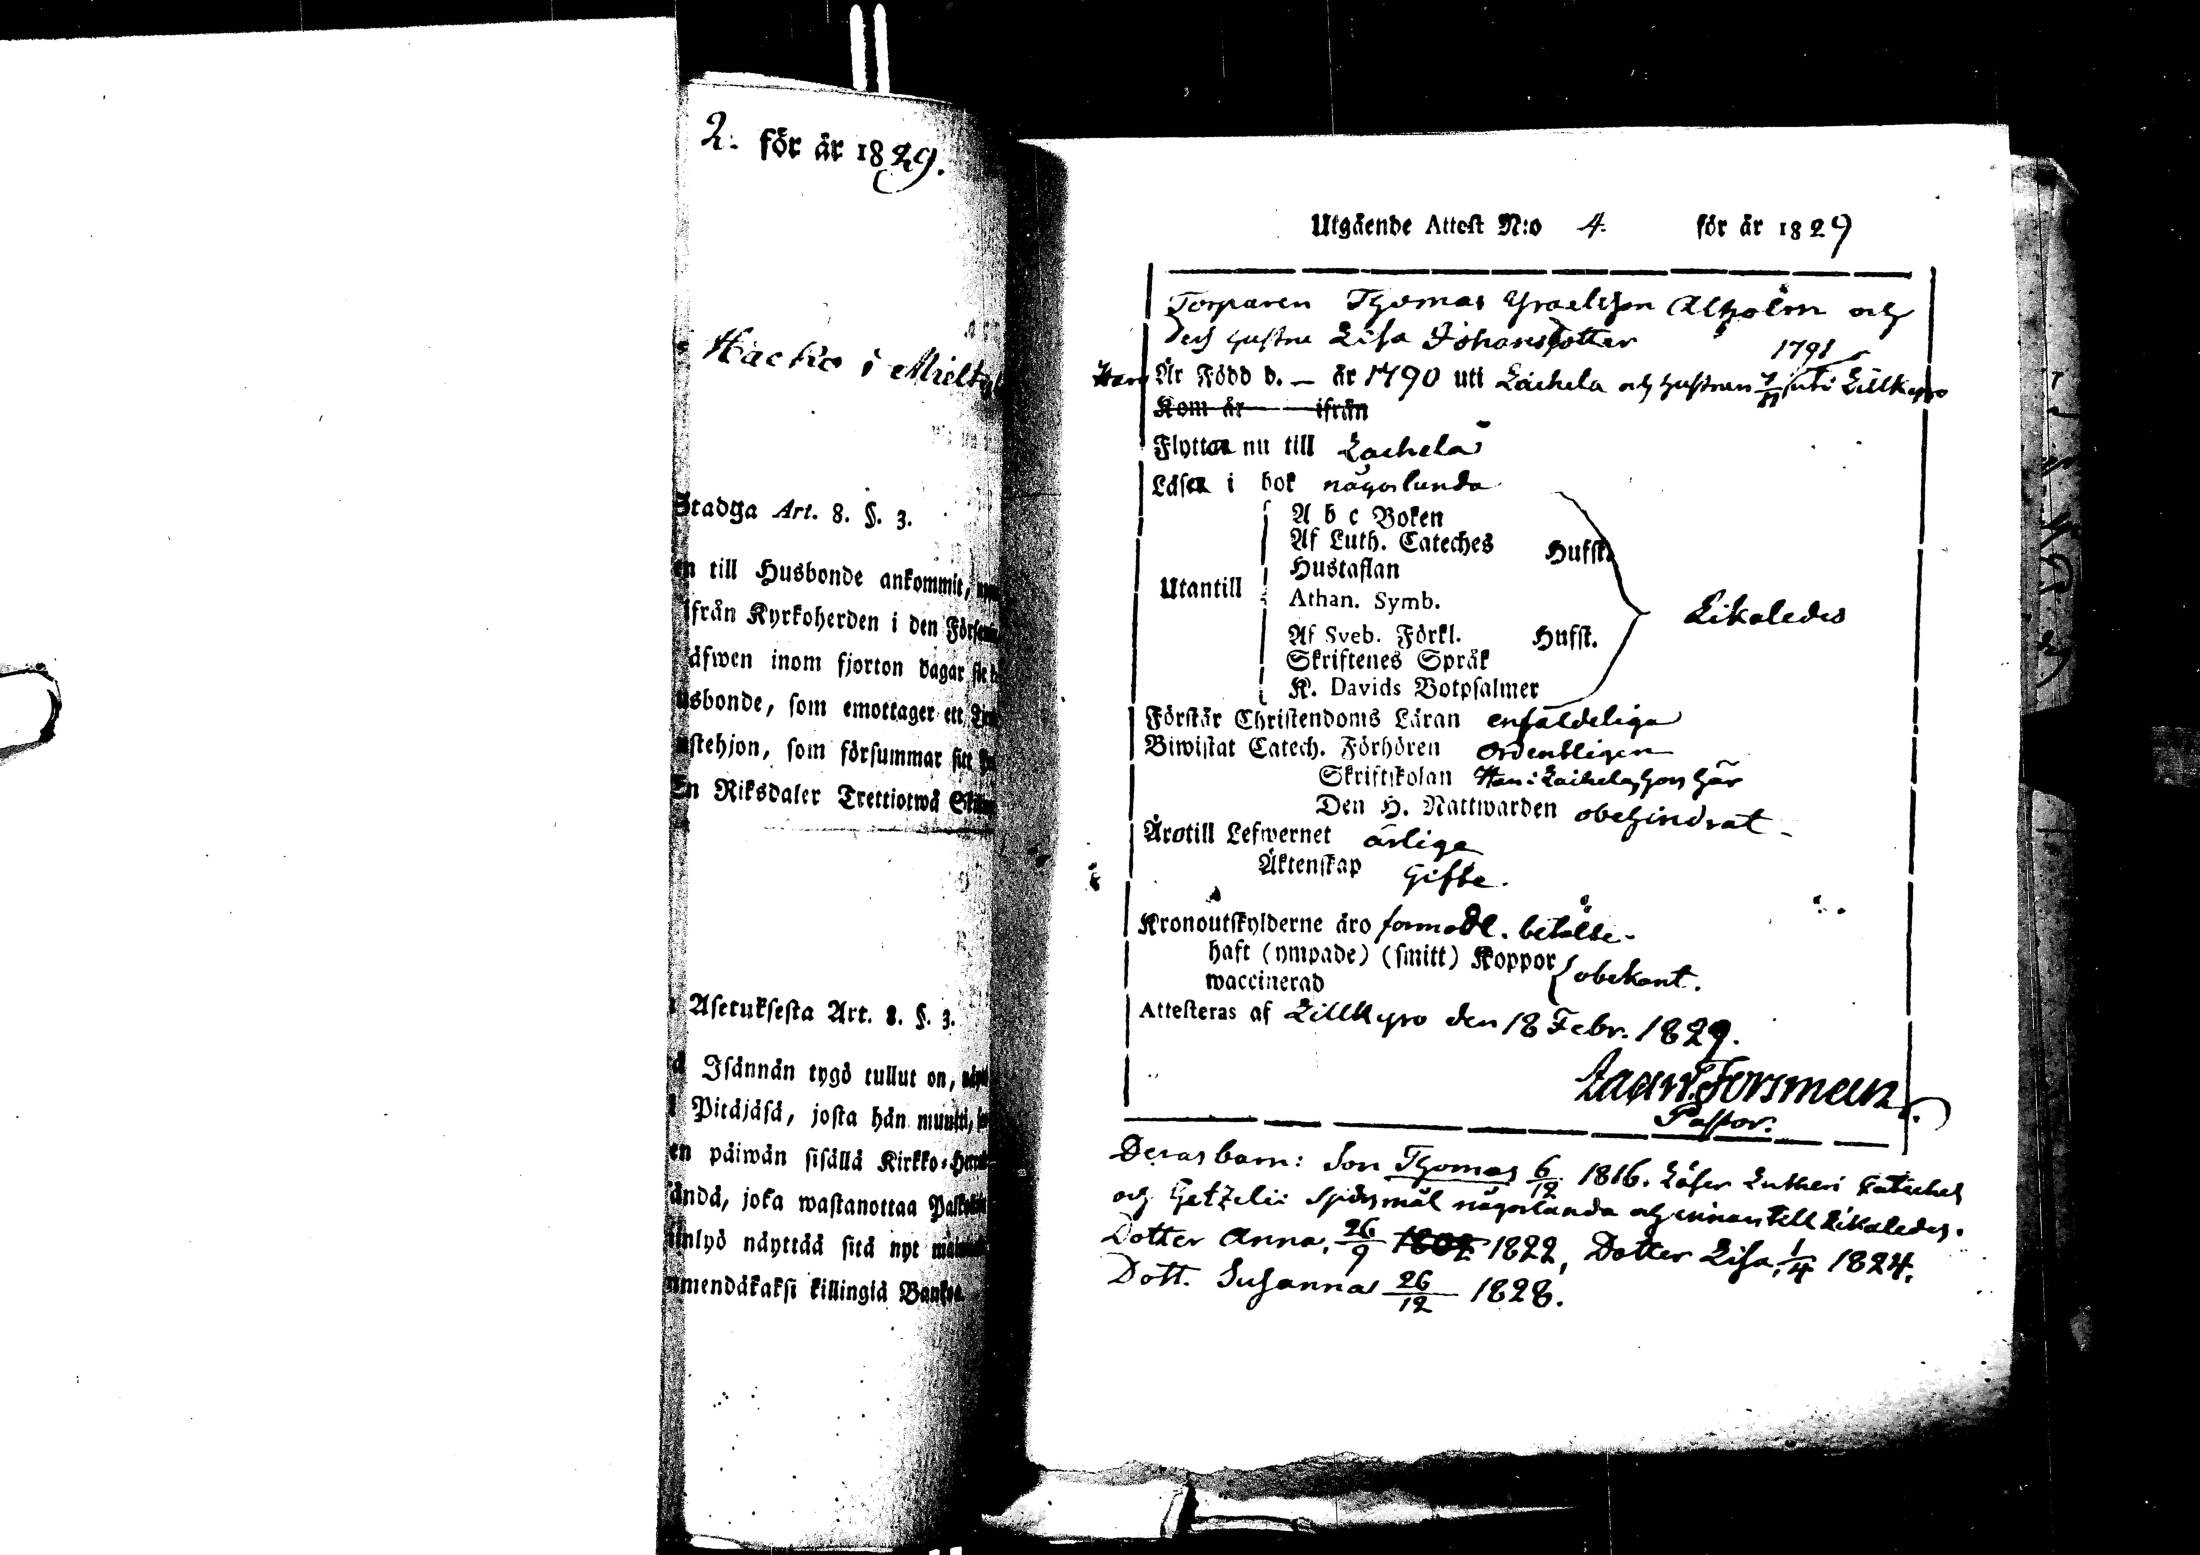 2. för år 1829.
Hacko i Mielty
Stadga Art. 8. §. 3.
en till Husbonde ankommit,
ifrån Kyrkoherden i den Försam
äfwen inom fjorton dagar
usbonde, som emottager ett
nstehjon, som försummar sitt
En Riksdaler Trettiotwå Skill
Asetuksesta Art. 8. §. 3.
Isännän tygö tullut on,
Pitäjäsä, josta hän muutti,
en päiwän sisällä Kirkko-Her
ändä, joka wastanottaa
nlyö näyttää sitä nyt
mmendäkaksi killingiä Banko.
Utgående Attest N:o 4. för år 1829
Torparen Thomas Israelsson Alholm och
dess hustru Lisa Johansdotter
1791
Han Är Född d. — år 1790 uti Laihela och hustrun 7/11 uti Lillkyro
Kom år ifrån
Flyttar nu till Laihela
Läser i bok någorlunda
A b c Boken
Af Luth. Cateches Hufst.
Hustaflan
Utantill
Athan. Symb.
Likaledes
Af Sveb. Förkl. Hufst.
Skriftenes Språk
K. Davids Botpsalmer
Förstår Christendoms Läran enfaldeliga
Biwistat Catech. Förhören ordentligen
Skriftskolan Han i Laihela, hon här
Den H. Nattwarden obehindrat -
Äro till Lefwernet ärliga
Äktenskap Gifte.
Kronoutskylderne äro förmodl. betalte -
haft (ympade) (smitt) Koppor
waccinerad
obekant.
Attesteras af Lillkyro den 18 Febr. 1829.
Forsman
Pastor.
Deras barn: Son Thomas 6/12 1816. Läser Lutheri Kateches
och Getzelii Spörsmål någorlunda och innantill likaledes.
Dotter Anna, 26/9 1822, Dotter Lisa, 1/4 1824.
Dott. Susanna 26/12 1828.